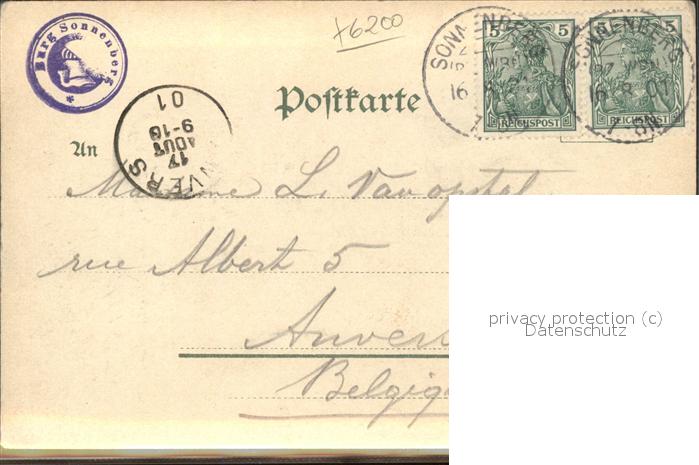 Burg Sonnenberg
+6200
SONNENBERG
16.8.01
5 5
REICHSPOST
SONNENBERG
16.8.01
5
REICHSPOST
Postkarte
ANVERS
17
AOUT
9-10
01
An
Madame L. Van opstal
rue Albert 5
Anvers
Belgiq
privacy protection (c)
Datenschutz